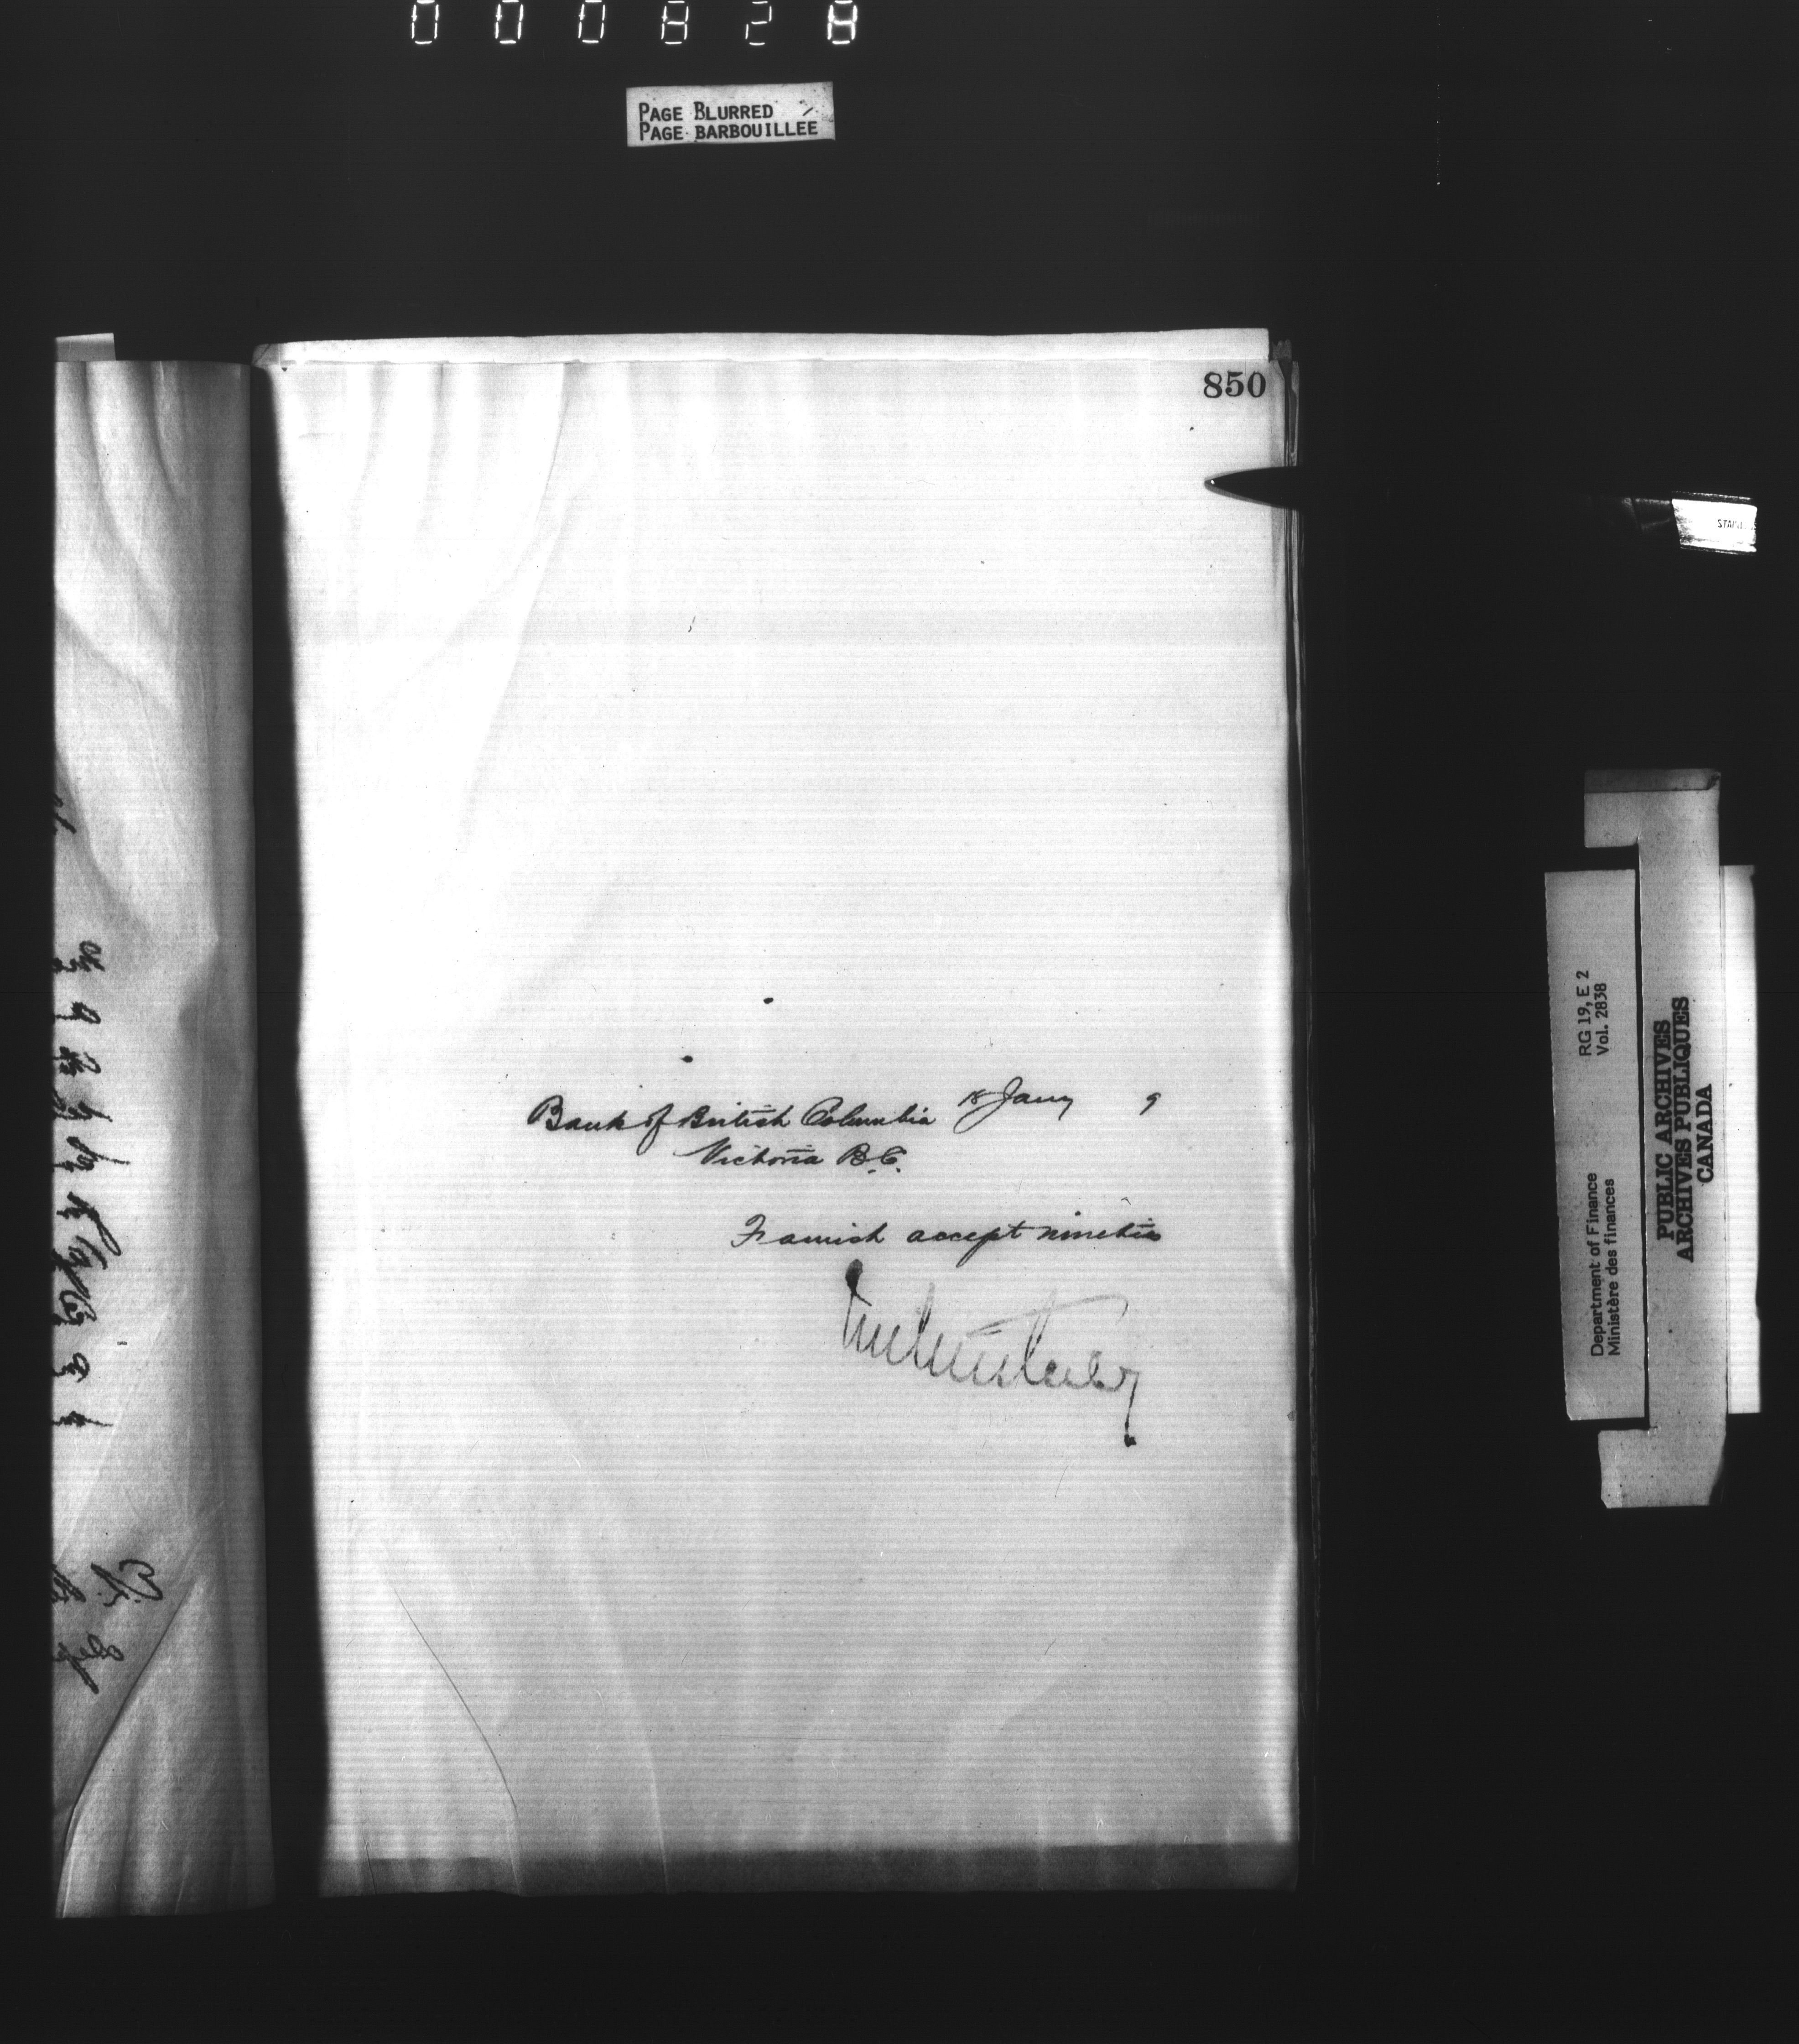 000828
PAGE BLURRED
PAGE BARBOUILLEE
850
Bank of British Columbia 18 Jany 9
Victoria B.C.
Famish accept nineties
RG 19, E 2
Vol. 2838
Department of Finance
Ministère des finances
PUBLIC ARCHIVES
ARCHIVES PUBLIQUES
CANADA